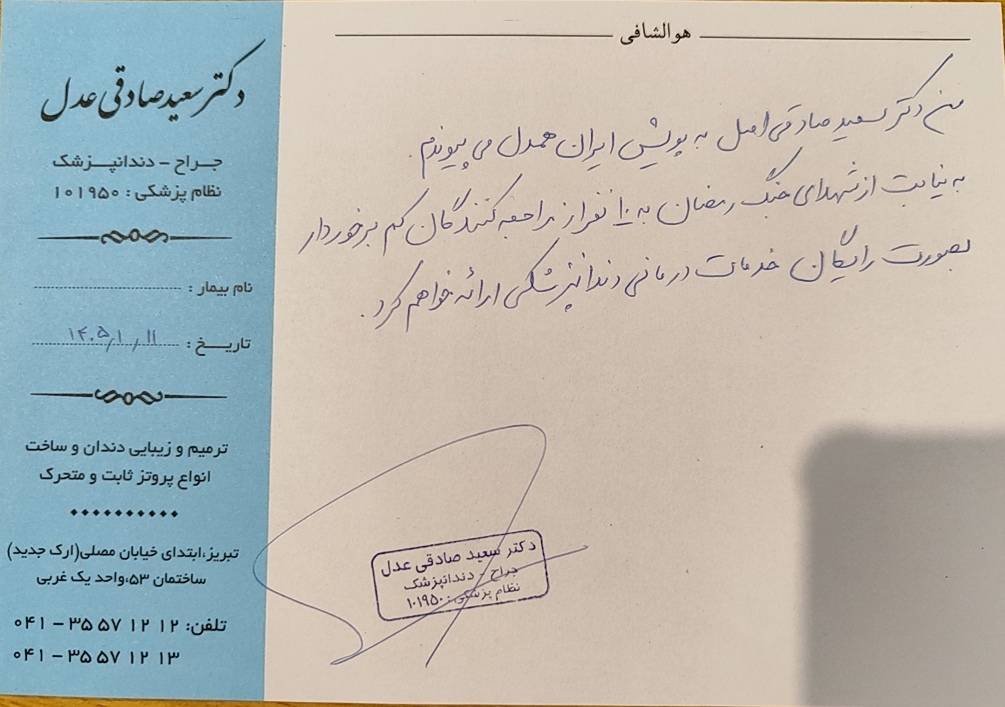 هوالشافی
من دکتر سعید صادقی اصل به پویش ایران همدل می پیوندم.
به نیابت از شهدای جنگ رمضان به ۱۰ نفر از مراجعه کنندگان کم برخوردار
بصورت رایگان خدمات درمانی دندانپزشکی ارائه خواهم کرد.
دکتر سعید صادقی عدل
جراح - دندانپزشک
نظام پزشکی: ۱۰۱۹۵۰
دکتر سعید صادقی عدل
جراح - دندانپزشک
نظام پزشکی: ۱۰۱۹۵۰
نام بیمار:
تاریخ: ۱۴۰۵/۱/۱۱
ترمیم و زیبایی دندان و ساخت
انواع پروتز ثابت و متحرک
تبریز،ابتدای خیابان مصلی(ارک جدید)
ساختمان ۵۳،واحد یک غربی
تلفن: ۱۲ ۱۲ ۵۷ ۳۵ - ۰۴۱
۱۳ ۱۲ ۵۷ ۳۵ - ۰۴۱